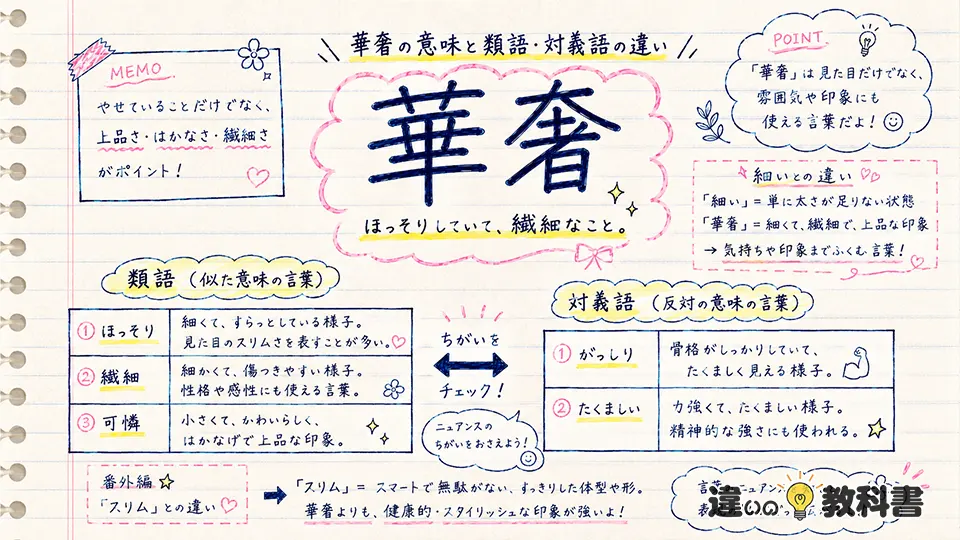 華奢の意味と類語・対義語の違い
MEMO
やせていることだけでなく、
上品さ・はかなさ・繊細さ
がポイント!
華奢
ほっそりしていて、繊細なこと。
POINT
「華奢」は見た目だけでなく、
雰囲気や印象にも
使える言葉だよ!
細いとの違い
「細い」=単に太さが足りない状態
「華奢」=細くて、繊細で、上品な印象
→ 気持ちや印象までふくむ言葉!
類語(似た意味の言葉)
① ほっそり
細くて、すらっとしている様子。
見た目のスリムさを表すことが多い。
② 繊細
細かくて、傷つきやすい様子。
性格や感性にも使える言葉。
③ 可憐
小さくて、かわいらしく、
はかなげで上品な印象。
ちがいを
チェック!
ニュアンスの
ちがいをおさえよう!
対義語(反対の意味の言葉)
① がっしり
骨格がしっかりしていて、
たくましく見える様子。
② たくましい
力強くて、たくましい様子。
精神的な強さにも使われる。
番外編
「スリム」との違い
「スリム」= スマートで無駄がない、すっきりした体型や形。
華奢よりも、健康的・スタイリッシュな印象が強いよ!
違いの教科書